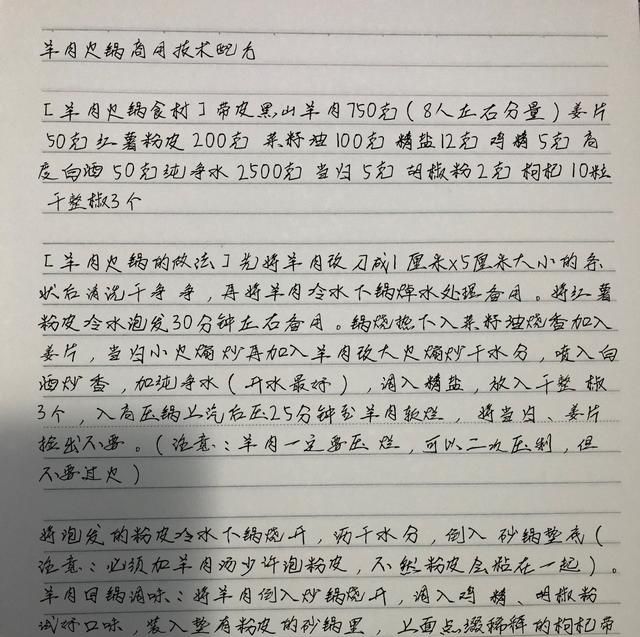 羊肉火锅商用技术配方
[羊肉火锅食材]带皮黑山羊肉750克(8人左右分量)姜片
50克红薯粉皮200克菜籽油100克精盐12克鸡精5克高
度白酒50克纯净水2500克当归5克胡椒粉2克枸杞10粒
干整椒3个
[羊肉火锅的做法]先将羊肉改刀成1厘米x5厘米大小的条
状后清洗干净净,再将羊肉冷水下锅焯水处理备用。将红薯
粉皮冷水泡发30分钟左右备用。锅烧热下入菜籽油烧香加入
姜片,当归小火煸炒再加入羊肉改大火煸炒干水分,喷入白
酒炒香,加纯净水(开水最好),调入精盐,放入干整椒
3个,入高压锅上汽后压25分钟至羊肉软烂,将当归、姜片
捡出不要。(注意:羊肉一定要压烂,可以二次压制,但
不要过火)
将泡发的粉皮冷水下锅烧开,沥干水分,倒入砂锅垫底(
注意:必须加羊肉汤少许泡粉皮,不然粉皮会粘在一起)。
羊肉回锅调味:将羊肉倒入炒锅烧开,调入鸡精、胡椒粉
试好口味,装入垫有粉皮的砂锅里,上面点缀稀稀的枸杞带